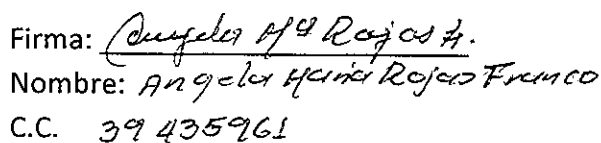 Firma: Angela Mª Rojas F.
Nombre: Angela Maria Rojas Franco
C.C. 39 435961